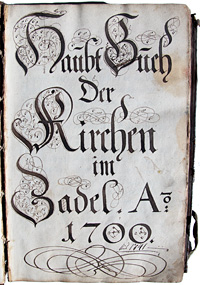 Haubt Buch
Der
Kirchen
im
Badel. Aº.
1700.